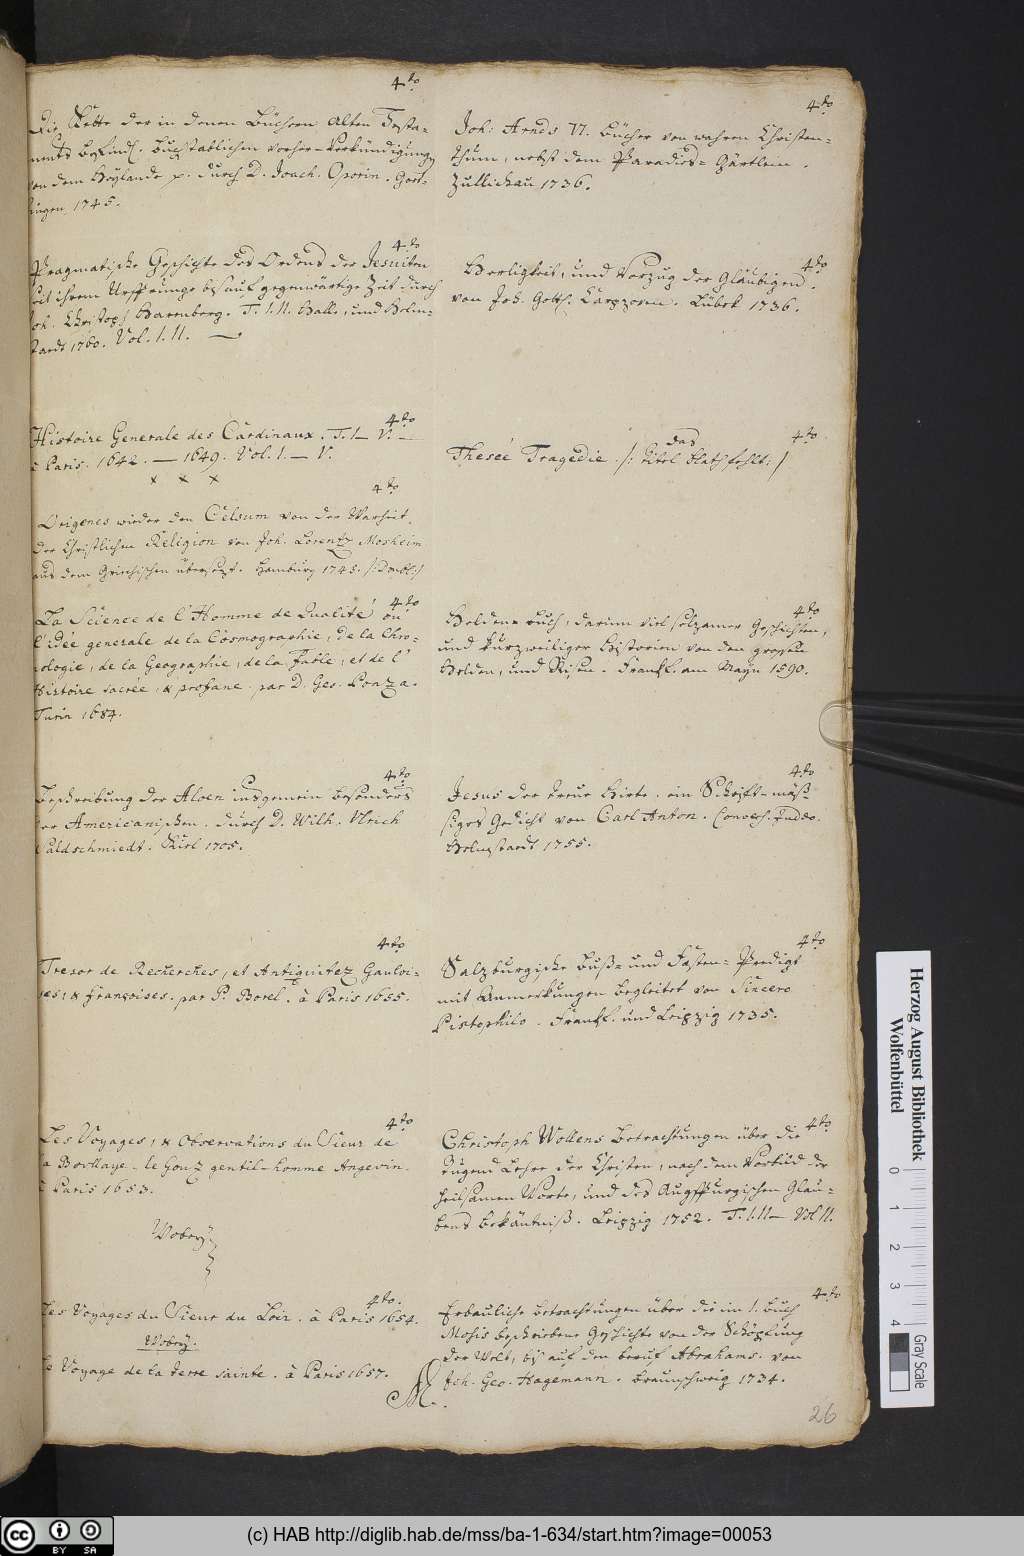 4to
Die Kette der in denen Büchern Alten Testa-
ments befindl. buchstäblichen vorher-Verkündigung
von dem Heylande p. durch D. Joach. Oporin. Gött-
ingen 1745.
4to
Pragmatische Geschichte des Ordens der Jesuiten
seit ihrem Ursprunge bis auf gegenwärtige Zeit durch
Joh. Christoph Harenberg. T. I. II. Halle, und Helm-
staedt 1760. Vol. I. II.
4to
Histoire Generale des Cardinaux. T. I — V. —
à Paris. 1642. — 1649. Vol. I. — V.
x x x
4to
Origenes wieder den Celsum von der Warheit
der Christlichen Religion von Joh. Lorentz Mosheim
aus dem Griechischen übersetzt. Hamburg 1745.
4to
La Science de l'Homme de Qualité ou
l'idée generale de la Cosmographie, de la Chro-
nologie, de la Geographie, de la Fable, et de l'
Histoire sacrée, & profane. par D. Geo. Ponza.
Turin 1684.
4to
Beschreibung der Aloen insgemein besonders
der Americanischen. durch D. Wilh. Ulrich
Waldschmiedt. Kiel 1705.
4to
Tresor de Recherches, et Antiquitez Gauloi-
ses, & françoises. par P. Borel. à Paris 1655.
4to
Les Voyages, & Observations du Sieur de
la Boullaye-le Gouz gentil-homme Angevin.
à Paris 1653.
Wobey
4to
Les Voyages du Sieur du Loir. à Paris 1654.
Wobey:
Le Voyage de la terre sainte. à Paris 1657.
4to
Joh: Arnds VI. Bücher von wahren Christen-
thum, nebst dem Paradis-Gärtlein.
Züllichau 1736.
4to
Herligkeit, und Vorzug der Gläubigen.
von Joh. Gottl. Carpzoven. Lübek 1736.
4to
das
Theseé Tragedie. /: Titel blath fehlt: /
4to
Helden-Buch, darinn viel selzamer Geschichten,
und kurzweiliger Historien von den grossen
Helden, und Risen. Franckf. am Mayn 1590.
4to
Jesus der treue Hirte. ein Schrift-mäs-
siges Gedicht von Carl Anton.
Helmstaedt 1755.
4to
Salzburgische Buss- und Fasten-Predigt
mit Anmerkungen begleitet von Sincero
Pistophilo. Franckf. und Leipzig 1735.
4to
Christoph Wollens Betrachtungen über die
Tugend Lehre der Christen, nach dem Vorbild der
heilsamen Worte, und des Augspurgischen Glau-
bens bekäntniss. Leipzig 1752. T. I. II — Vol II.
4to
Erbauliche Betrachtungen über die im 1. Buch
Mosis beschriebene Geschichte von der Schöpfung
der Welt, bis auf den beruf Abrahams. von
Joh. Geo. Hagemann. Braunschweig 1734.
26
Herzog August Bibliothek
Wolfenbüttel
0 1 2 3 4
Gray Scale
cc BY SA
(c) HAB http://diglib.hab.de/mss/ba-1-634/start.htm?image=00053